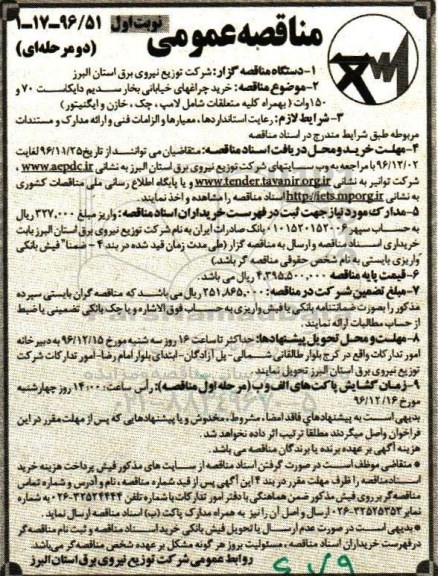 مناقصه عمومی
نوبت اول
۱-۱۷-۹۶/۵۱
(دو مرحله‌ای)
۱-دستگاه مناقصه گزار: شرکت توزیع نیروی برق استان البرز
۲-موضوع مناقصه: خرید چراغهای خیابانی بخار سدیم دایکاست ۷۰ و
۱۵۰ وات (بهمراه کلیه متعلقات شامل لامپ، چک، خازن و ایگنیتور)
۳- شرایط لازم: رعایت استانداردها، معیارها و الزامات فنی و ارائه مدارک و مستندات
مربوطه طبق شرایط مندرج در اسناد مناقصه
۴-مهلت خرید و محل دریافت اسناد مناقصه: متقاضیان می توانند از تاریخ ۹۶/۱۱/۲۵ لغایت
۹۶/۱۲/۰۲ با مراجعه به وب سایتهای شرکت توزیع نیروی برق استان البرز به نشانی www.aepdc.ir
شرکت توانیر به نشانی www.tender.tavanir.org.ir و یا پایگاه اطلاع رسانی ملی مناقصات کشوری
به نشانی http://iets.mporg.ir اسناد مناقصه را مشاهده و اخذ نمایند
۵-مدارک مورد نیاز جهت ثبت در فهرست خریداران اسناد مناقصه: واریز مبلغ ۳۲۷,۰۰۰ ریال
به حساب سپهر ۰۱۰۱۵۲۰۱۵۲۰۰۶ بانک صادرات ایران به نام شرکت توزیع نیروی برق استان البرز بابت
خریداری اسناد مناقصه و ارسال به مناقصه گزار (طی مدت زمان قید شده در بند ۴ - ضمنا" فیش بانکی
واریزی بایستی به نام شخص حقوقی مناقصه گر باشد)
۶- قیمت پایه مناقصه ۴,۳۹۵,۵۰۰,۰۰۰ ریال می باشد.
۷-مبلغ تضمین شرکت در مناقصه: ۲۵۱,۸۶۵,۰۰۰ ریال می باشد که مناقصه گران بایستی سپرده
مذکور را بصورت ضمانتنامه بانکی یا فیش واریزی به حساب فوق الاشاره و یا چک بانکی تضمینی یا ضبط
از حساب مطالبات ارائه نمایند.
۸-مهلت و محل تحویل پیشنهادها: حداکثر تا ساعت ۱۶ روز سه شنبه مورخ ۹۶/۱۲/۱۵ به دبیرخانه
امور تدارکات واقع در کرج بلوار طالقانی شمالی-پل آزادگان- ابتدای بلوار امام رضا-امور تدارکات شرکت
توزیع نیروی برق استان البرز تحویل نمایند.
۹- زمان گشایش پاکت های الف و ب (مرحله اول مناقصه): رأس ساعت ۱۴:۰۰ روز چهارشنبه
مورخ ۹۶/۱۲/۱۶
بدیهی است به پیشنهادهای فاقد امضا، مشروط، مخدوش و یا پیشنهادهایی که پس از مهلت مقرر در این
فراخوان واصل میگردند مطلقا ترتیب اثر داده نخواهد شد.
هزینه آگهی بر عهده برنده یا برندگان مناقصه می باشد.
* متقاضی موظف است در صورت گرفتن اسناد مناقصه از سایت های مذکور فیش پرداخت هزینه خرید
اسناد مناقصه را ظرف مهلت مقرر در بند ۴ این آگهی پس از قید شماره مناقصه، نام و آدرس و شماره تماس
مناقصه گر بر روی فیش مذکور ضمن هماهنگی با دفتر امور تدارکات با شماره تلفن ۰۲۶-۳۲۵۲۴۴۴۴ به شماره
نمابر ۰۲۶-۳۲۵۲۵۳۵۲ ارسال و اصل آن را نیز به همراه مدارک پاکت (ب) اسناد مناقصه ارسال نماید.
* بدیهی است در صورت عدم ارسال یا تحویل فیش بانکی خرید اسناد مناقصه و ثبت نام مناقصه گر
در فهرست خریداران اسناد مناقصه، مسئولیت بروز هر گونه مشکل بر عهده شخص مناقصه گر می باشد.
روابط عمومی شرکت توزیع نیروی برق استان البرز